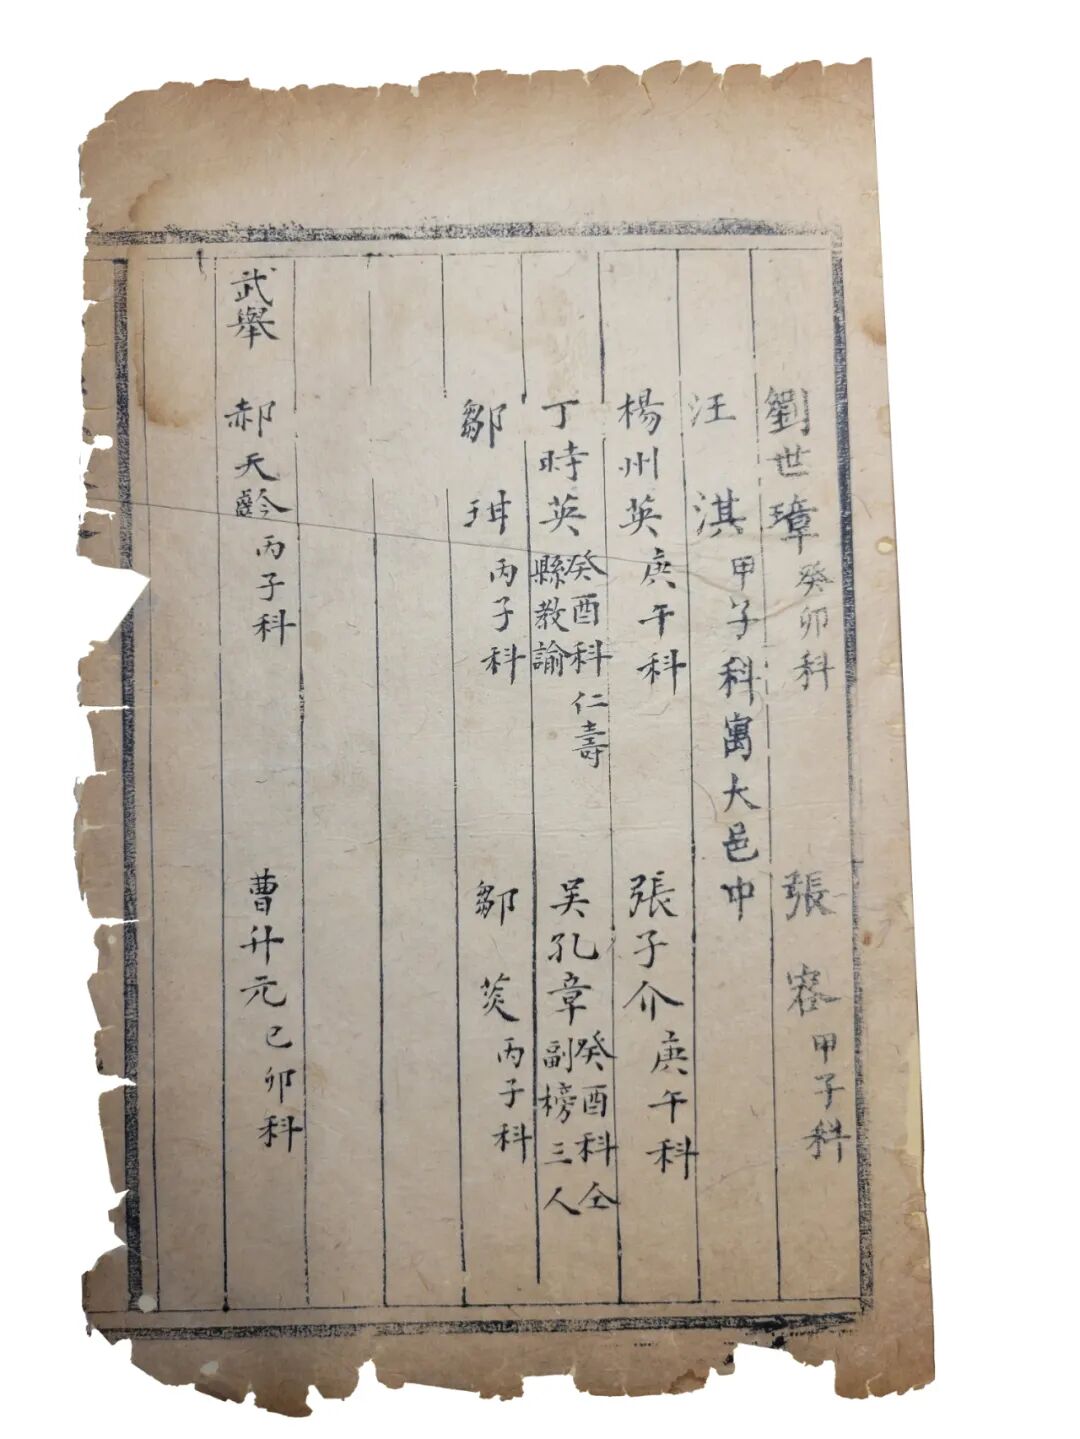 劉世璋癸卯科 張容甲子科
汪淇甲子科寓大邑中
楊州英庚午科 張子介庚午科
丁時英癸酉科仁壽縣教諭 吴孔章癸酉科仝副榜三人
鄒珥丙子科 鄒茨丙子科
武舉 郝天齡丙子科 曹升元己卯科